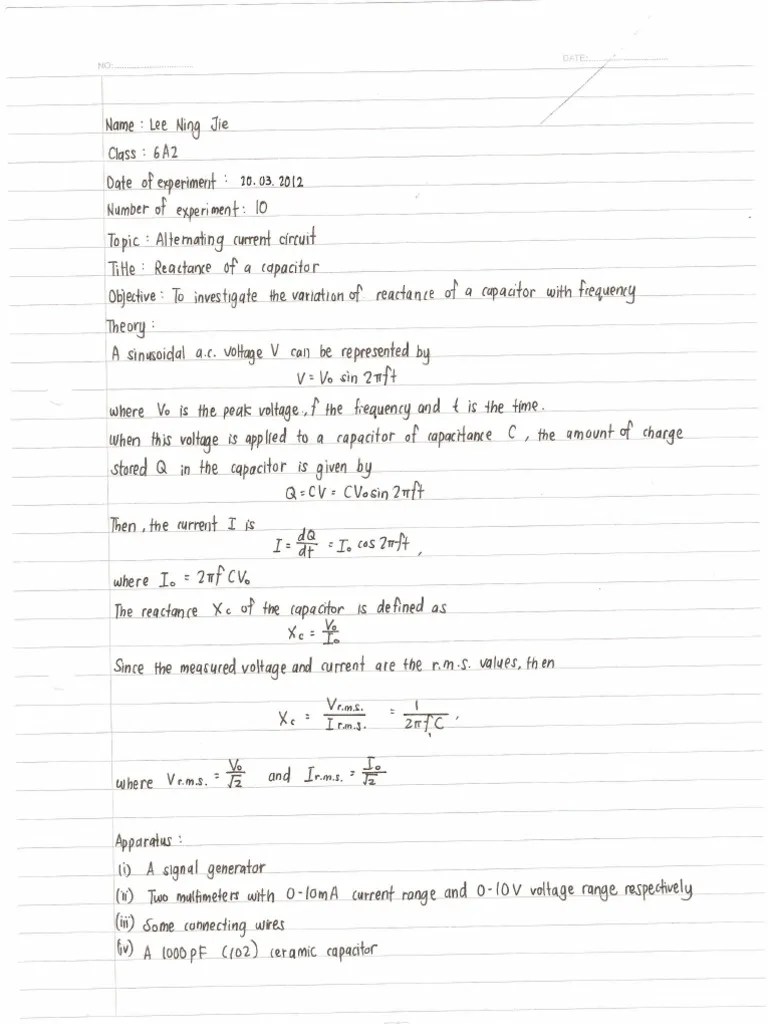 NO:
DATE:
Name : Lee Ning Jie
Class : 6A2
Date of experiment : 20.03.2012
Number of experiment : 10
Topic : Alternating current circuit
Title : Reactance of a capacitor
Objective : To investigate the variation of reactance of a capacitor with frequency
Theory :
A sinusoidal a.c. voltage V can be represented by
V = V₀ sin 2πft
where V₀ is the peak voltage, f the frequency and t is the time.
When this voltage is applied to a capacitor of capacitance C, the amount of charge
stored Q in the capacitor is given by
Q = CV = CV₀ sin 2πft
Then, the current I is
I = dQ/dt = I₀ cos 2πft,
where I₀ = 2πf CV₀
The reactance Xc of the capacitor is defined as
Xc = V₀/I₀
Since the measured voltage and current are the r.m.s. values, then
Xc = Vr.m.s./Ir.m.s. = 1/2πfC,
where Vr.m.s. = V₀/√2 and Ir.m.s. = I₀/√2
Apparatus :
(i) A signal generator
(ii) Two multimeters with 0-10mA current range and 0-10V voltage range respectively
(iii) Some connecting wires
(iv) A 1000pF (102) ceramic capacitor